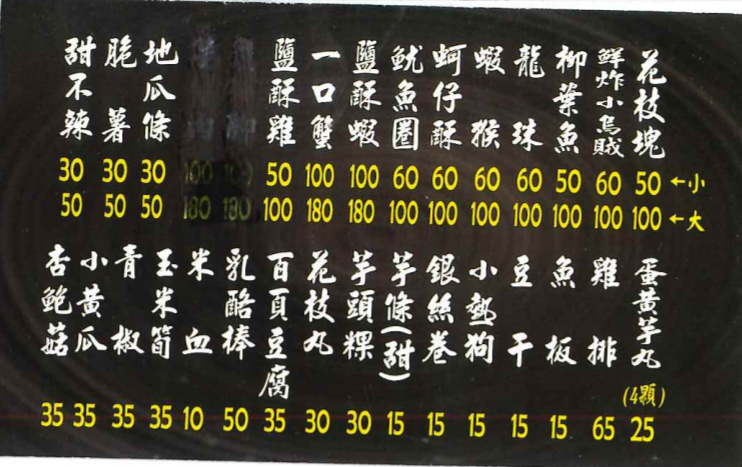 花枝塊 50 100
鮮炸小烏賊 60 100
柳葉魚 50 100
龍珠 60 100
蝦猴 60 100
蚵仔酥 60 100
魷魚圈 60 100
鹽酥蝦 100 180
一口蟹 100 180
鹽酥雞 50 100
100 180
100 180
地瓜條 30 50
脆薯 30 50
甜不辣 30 50
←小
←大
蛋黃芋丸(4顆) 25
雞排 65
魚板 15
豆干 15
小熱狗 15
銀絲卷 15
芋條(甜) 15
芋頭粿 30
花枝丸 30
百頁豆腐 35
乳酪棒 50
米血 10
玉米筍 35
青椒 35
小黃瓜 35
杏鮑菇 35